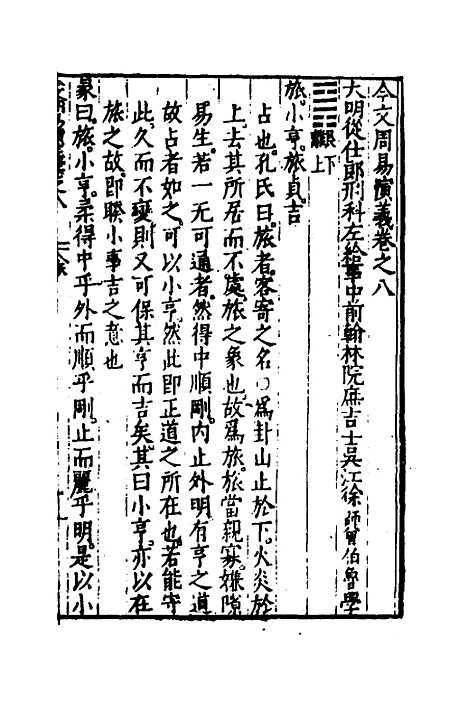 今文周易演義卷之八
大明從仕郎刑科左給事中前翰林院庶吉士吳江徐師曾伯魯學
艮下
離上
旅小亨旅貞吉
占也孔氏曰旅者客寄之名○爲卦山止於下火炎於
上去其所居而不處旅之象也故爲旅旅當親寡嫌隙
易生若一无可通者然得中順剛内止外明有亨之道
故占者如之可以小亨然此即正道之所在也若能守
此久而不變則又可保其亨而吉矣其曰小亨亦以在
旅之故即睽小事吉之意也
彖曰旅小亨柔得中乎外而順乎剛止而麗乎明是以小